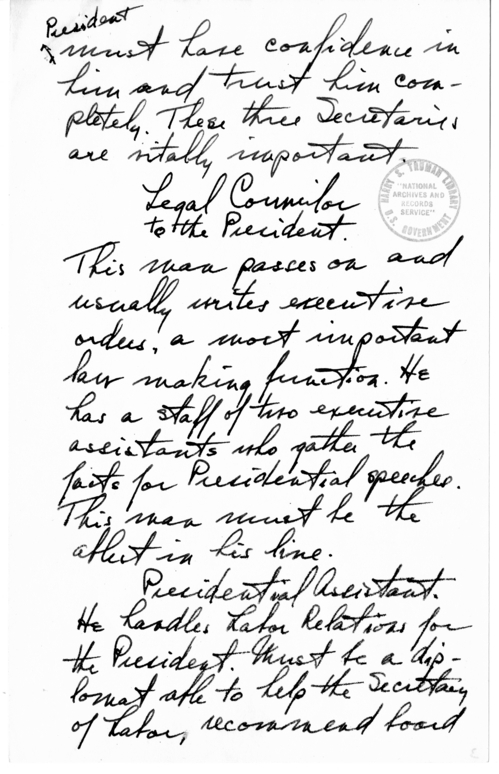 President
must have confidence in
him and trust him com-
pletely. These three Secretaries
are vitally important.
HARRY S. TRUMAN LIBRARY
"NATIONAL
ARCHIVES AND
RECORDS
SERVICE"
U.S. GOVERNMENT
Legal Councilor
to the President.
This man passes on and
usually writes executive
orders, a most important
law making function. He
has a staff of two executive
assistants who gather the
facts for Presidential speeches.
This man must be the
ablest in his line.
Presidential Assistant.
He handles Labor Relations for
the President. Must be a dip-
lomat able to help the Secretary
of Labor, recommend board